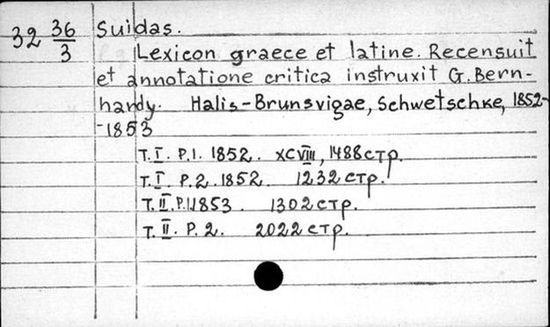 32 36/3 Suidas.
Lexicon graece et latine. Recensuit
et annotatione critica instruxit G. Bern-
hardy. Halis-Brunsvigae, Schwetschke, 1852-
-1853
T. I. P. 1. 1852. XCVIII, 1488 стр.
T. I. P. 2. 1852. 1232 стр.
T. II. P. I. 1853. 1302 стр.
T. II. P. 2. 2022 стр.